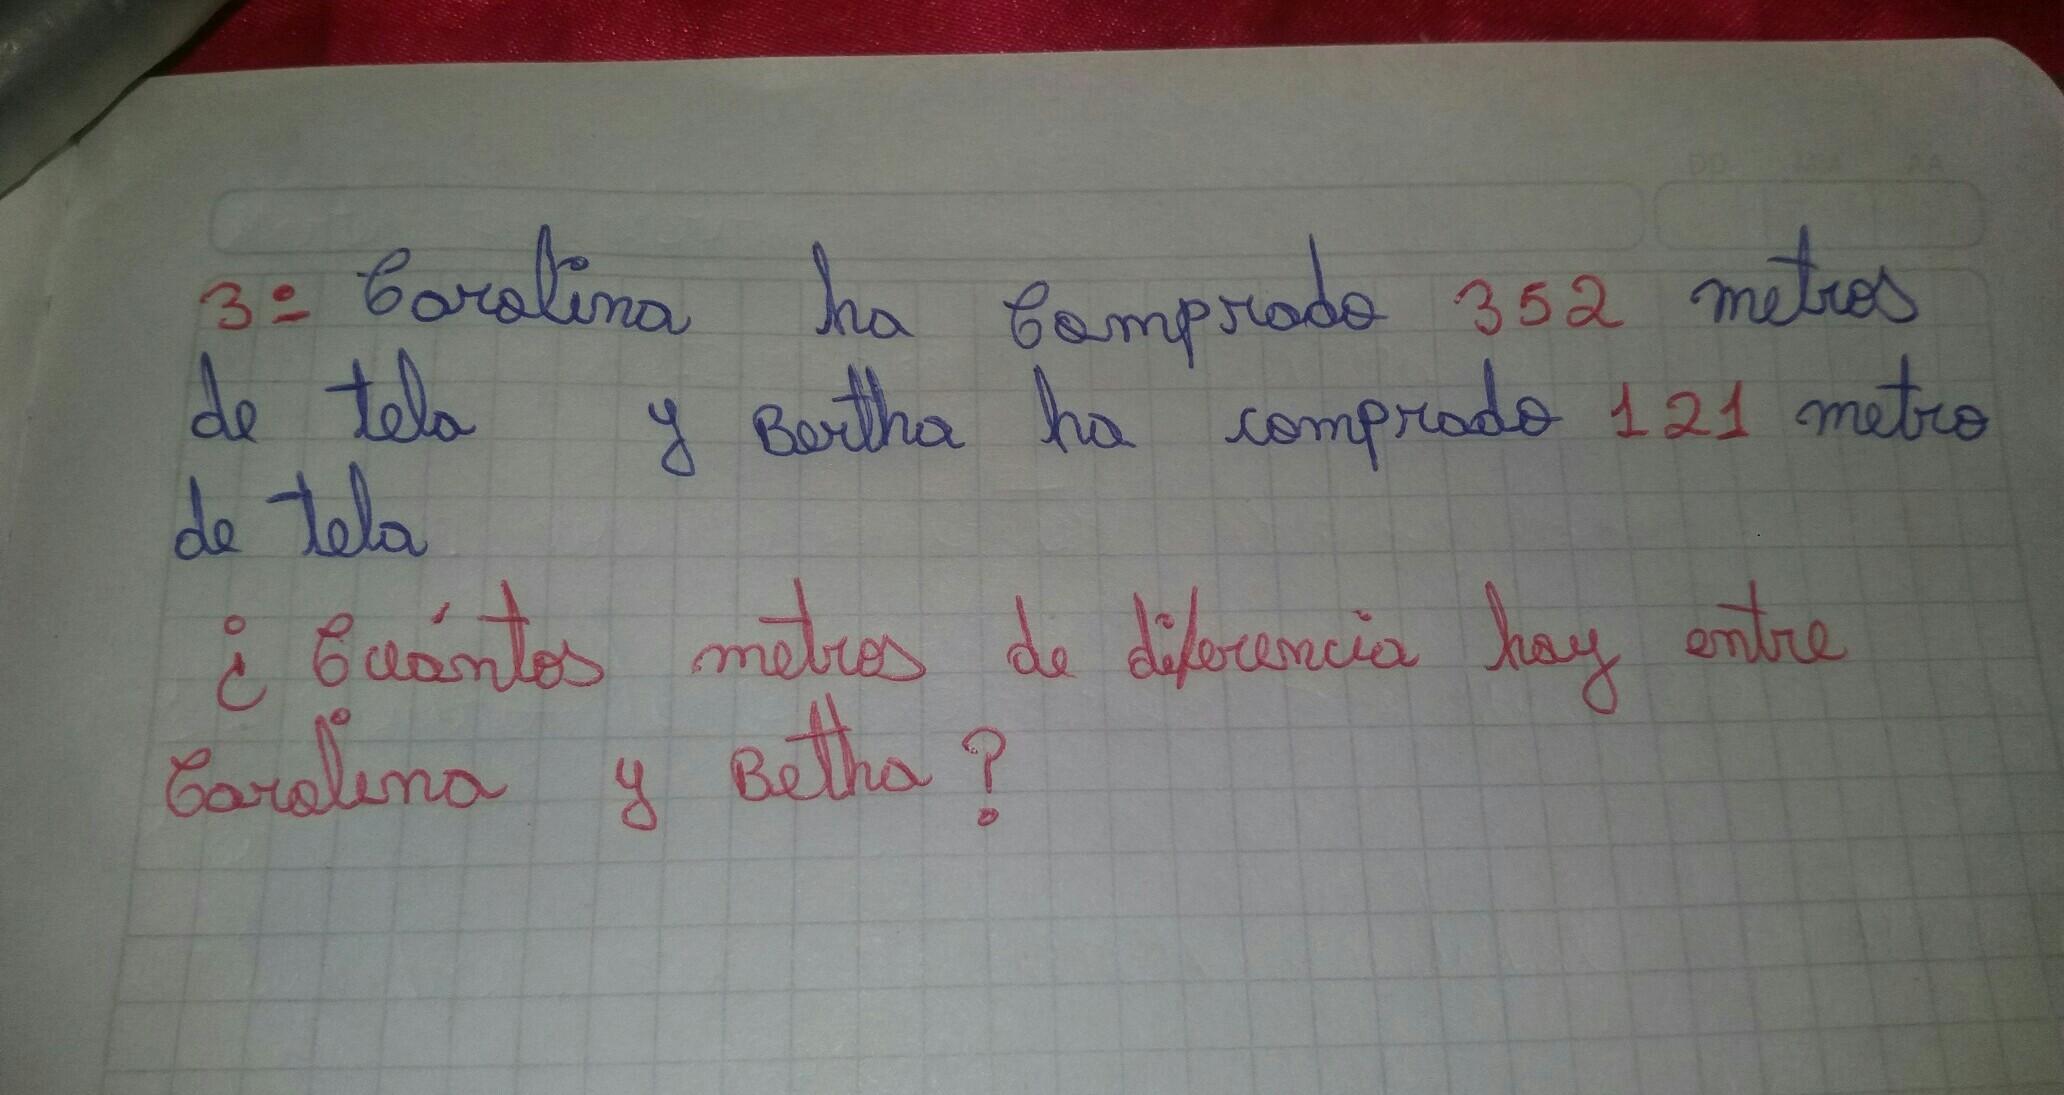 3º Carolina ha Comprado 352 metros
de tela y Bertha ha comprado 121 metro
de tela
¿Cuántos metros de diferencia hay entre
Carolina y Betha?